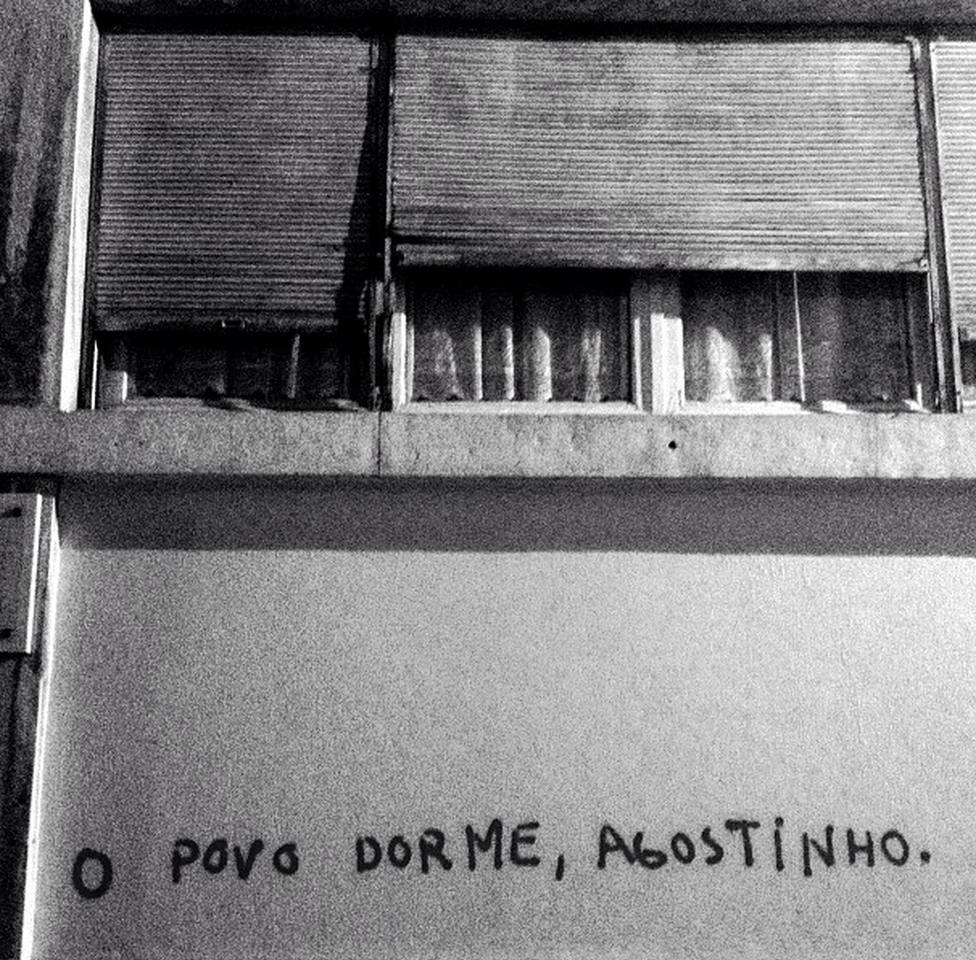 O POVO DORME, AGOSTINHO.